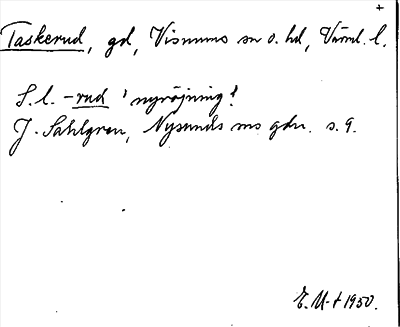 +
Taskerud, gd, Visnums sn o. hd, Värml. l.
S. l. -rud 'nyröjning'.
J. Sahlgren, Nysunds sns gdn. s. 9.
E. U-t 1950.